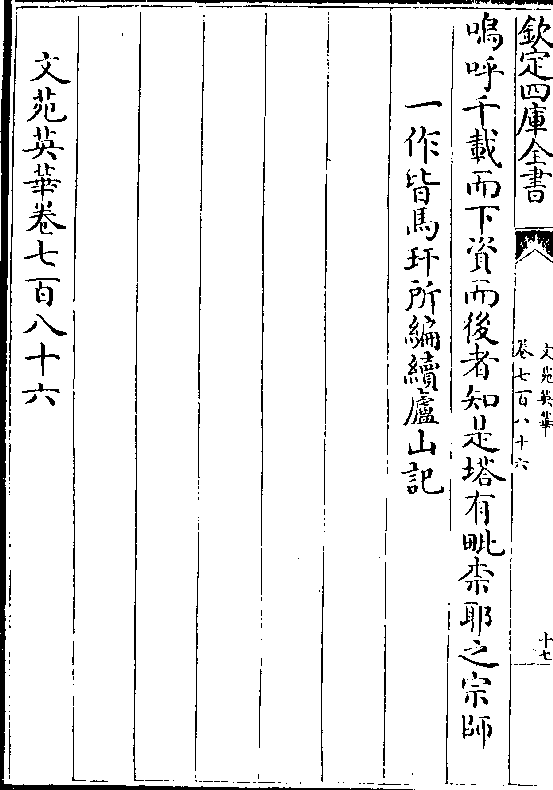 欽定四庫全書
文苑英華
卷七百八十六
十七
嗚呼千載而下資而後者知是塔有毗柰耶之宗師
一作皆馬玕所編續廬山記
文苑英華卷七百八十六